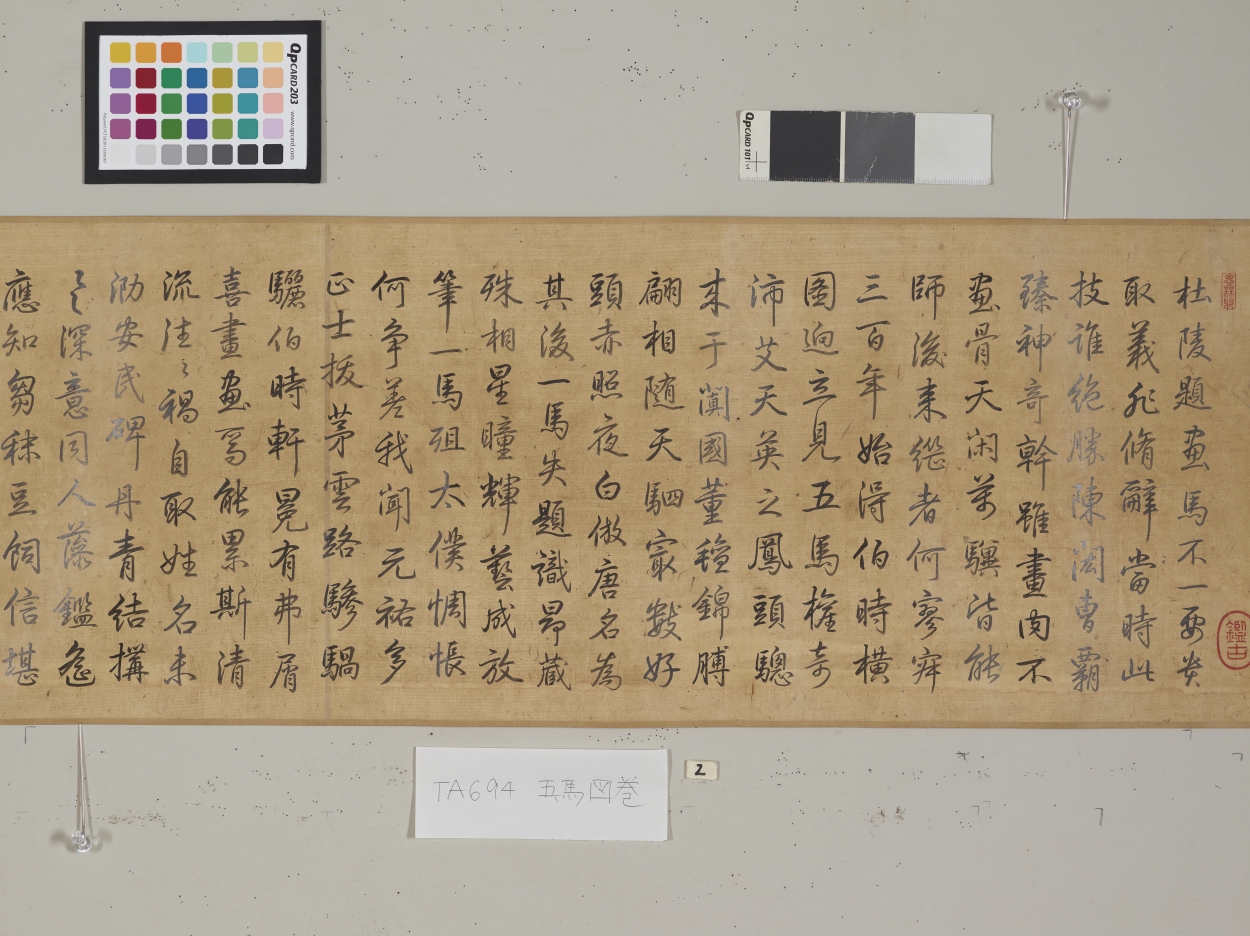 杜陵題画馬不一要與
取義邪脩辭當時此
技誰絶勝陳閎曹霸
臻神奇幹雖畫肉不
画骨天闲萬驥皆能
師後来継者何寥寂
三百年始得伯時横
圖迥立見五馬權奇
沛艾天英之鳳頭驄
来于闐國董氊錦膊
翩相随天駟㝡數好
頭赤照夜白倣唐名為
其後一馬失題識曷蔵
殊相星瞳輝藝成放
筆一馬殂太僕惆悵
何争差我聞元祐多
正士拔茅雲路驂騧
驪伯時軒冕有弗屑
喜畫画馬能累斯清
流注〻禍自取姓名未
泐安民碑丹青結搆
深意同人藻鑑忩
應知芻秣豆飼信堪
鑑古
QPCARD 203
www.qpcard.com
QPCARD 101 v4
TA694 五馬図巻
2